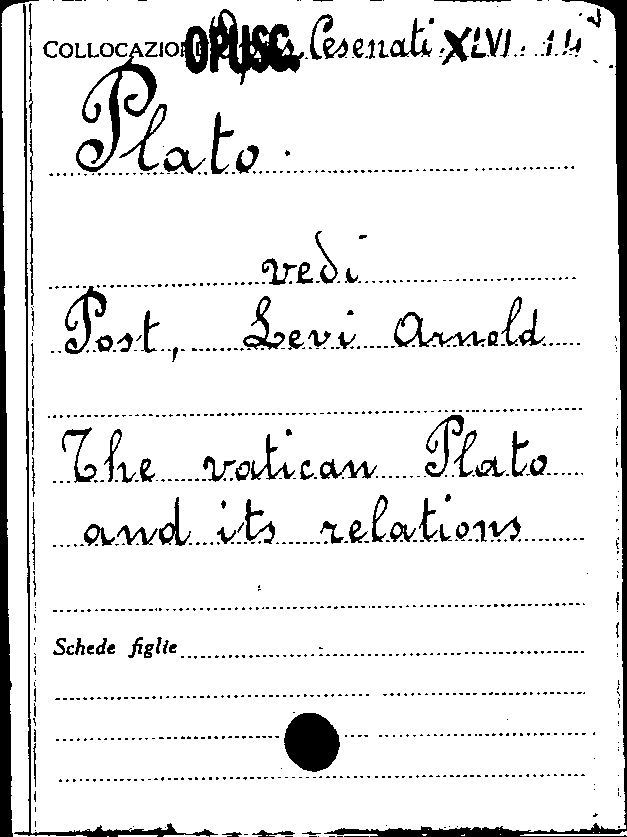 COLLOCAZIONE OPUSC. Cesenati. XLVI. 14
Plato.
vedi
Post, Levi Arnold
The vatican Plato
and its relations
Schede figlie